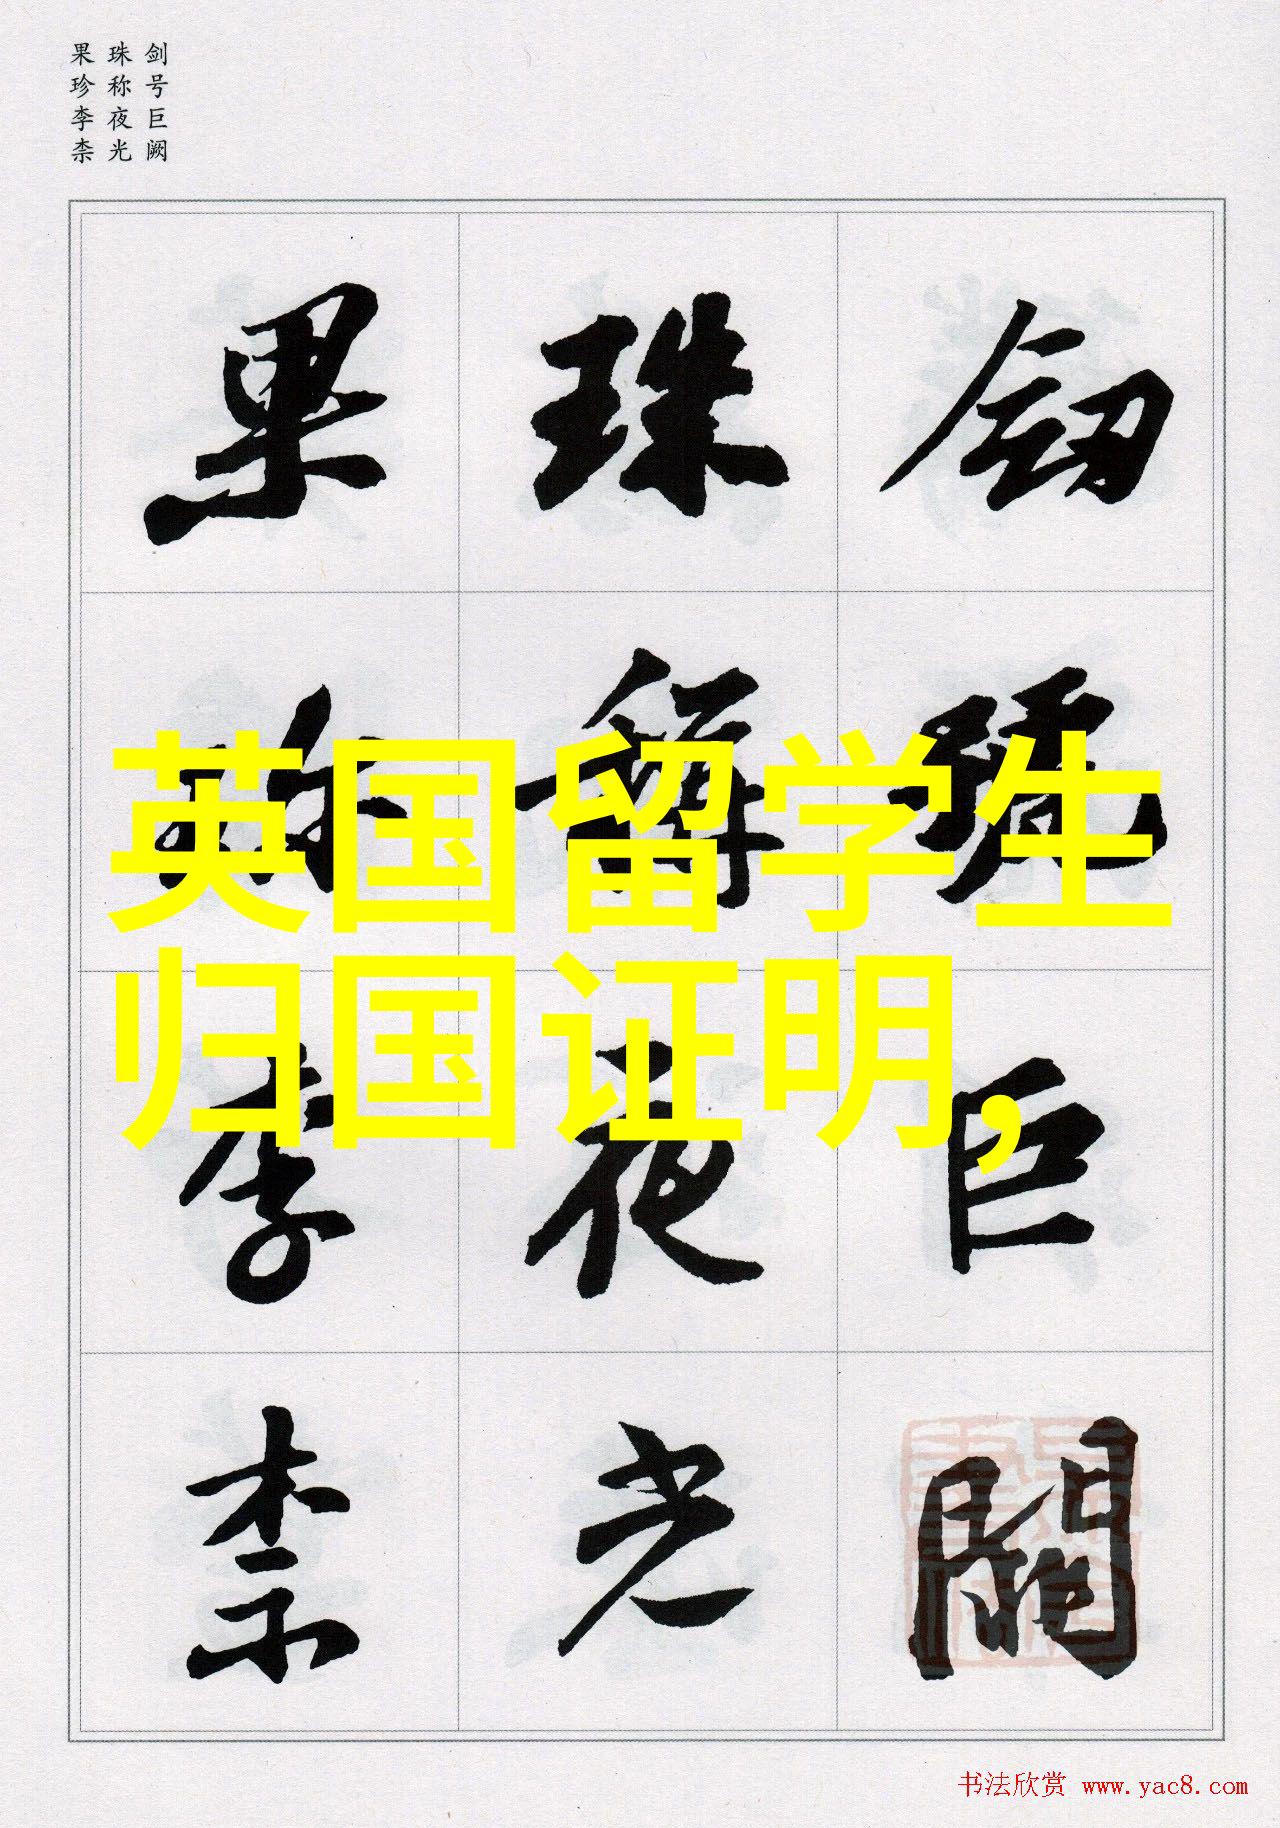 剑号巨阙
珠称夜光
果珍李柰
剑号巨阙
珠称夜光
果珍李柰
英国留学生
归国证明,
书法欣赏 www.yac8.com